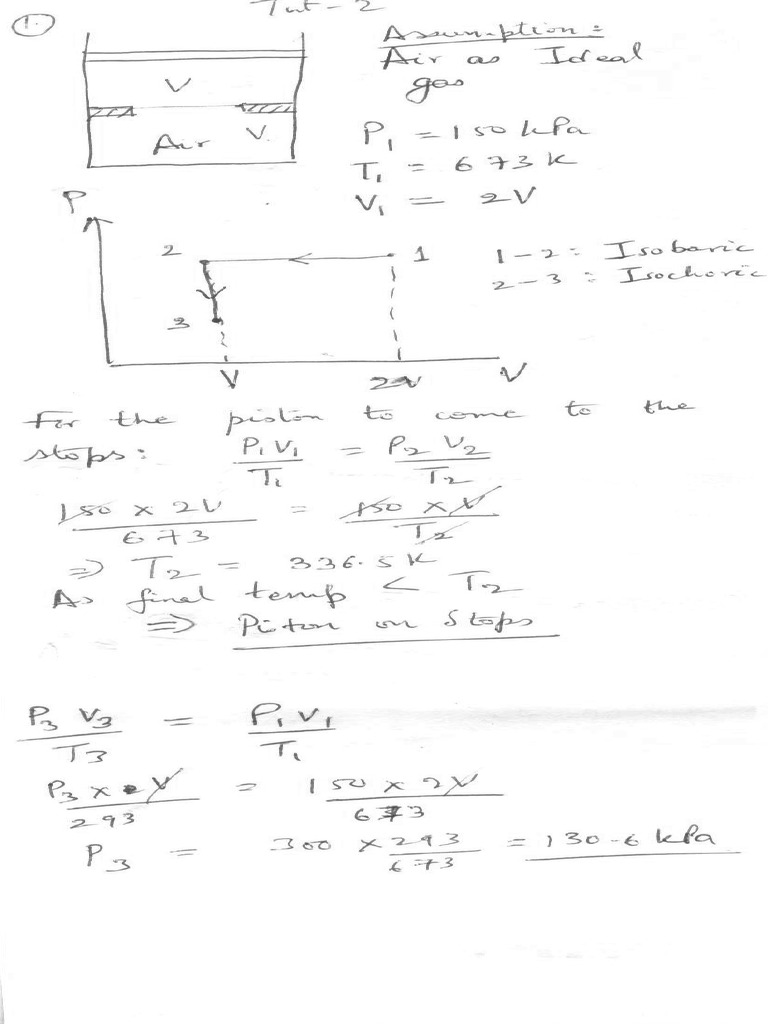 Tut-2
1.
Assumption:
Air as Ideal
gas
V
V
Air
P₁ = 150 kPa
T₁ = 673 K
V₁ = 2V
P
2
1
3
V
2V
V
1-2: Isobaric
2-3: Isochoric
For the piston to come to the
stops: P₁V₁/T₁ = P₂V₂/T₂
150 x 2V/673 = 150 x V/T₂
⇒ T₂ = 336.5 K
As final temp < T₂
⇒ Piston on Stops
P₃V₃/T₃ = P₁V₁/T₁
P₃ x V/293 = 150 x 2V/673
P₃ = 300 x 293/673 = 130.6 kPa